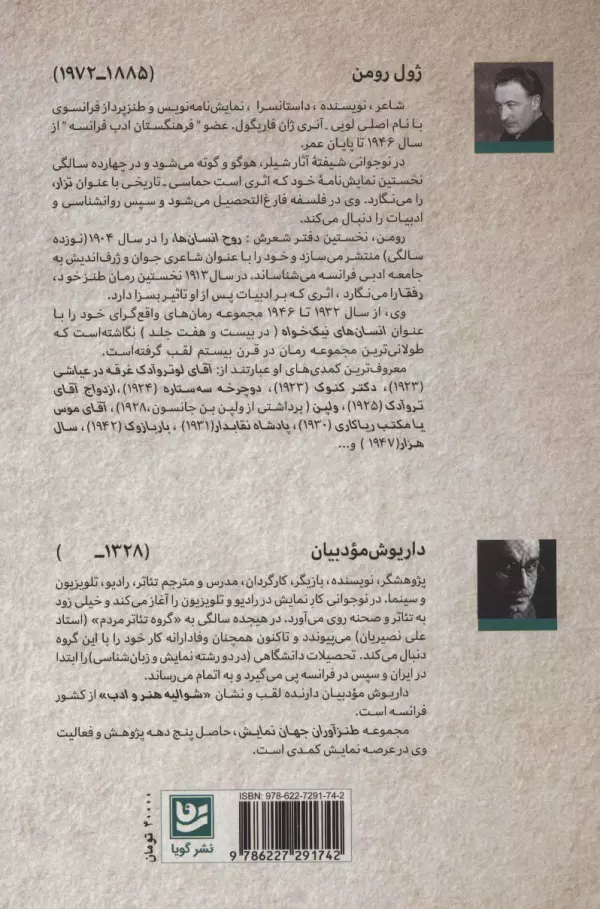 ژول رومن (۱۸۸۵ـ۱۹۷۲)
شاعر، نویسنده، داستانسرا، نمایش‌نامه‌نویس و طنزپرداز فرانسوی
با نام اصلی لویی ـ آنری ژان فاریگول. عضو "فرهنگستان ادب فرانسه" از
سال ۱۹۴۶ تا پایان عمر.
در نوجوانی شیفتهٔ آثار شیلر، هوگو و گوته می‌شود و در چهارده سالگی
نخستین نمایش‌نامهٔ خود که اثری است حماسی ـ تاریخی با عنوان تزار،
را می‌نگارد. وی در فلسفه فارغ‌التحصیل می‌شود و سپس روانشناسی و
ادبیات را دنبال می‌کند.
رومن، نخستین دفتر شعرش : روح انسان‌ها، را در سال ۱۹۰۴ (نوزده
سالگی) منتشر می‌سازد و خود را با عنوان شاعری جوان و ژرف‌اندیش به
جامعه ادبی فرانسه می‌شناساند. در سال ۱۹۱۳ نخستین رمان طنز خود،
رفقا را می‌نگارد، اثری که بر ادبیات پس از او تاثیر بسزا دارد.
وی، از سال ۱۹۳۲ تا ۱۹۴۶ مجموعه رمان‌های واقع‌گرای خود را با
عنوان انسان‌های نیک‌خواه (در بیست و هفت جلد) نگاشته‌است که
طولانی‌ترین مجموعه رمان در قرن بیستم لقب گرفته‌است.
معروف‌ترین کمدی‌های او عبارتند از: آقای لوتروآدک غرقه در عیاشی
(۱۹۲۳)، دکتر کنوک (۱۹۲۳)، دوچرخه سه‌ستاره (۱۹۲۴)، ازدواج آقای
تروآدک (۱۹۲۵)، ولپن (برداشتی از ولپن بن جانسون، ۱۹۲۸)، آقای موس
یا مکتب ریاکاری (۱۹۳۰)، پادشاه نقابدار (۱۹۳۱)، باربازوک (۱۹۴۲)، سال
هزار (۱۹۴۷) و...
داریوش مؤدبیان (۱۳۲۸ـ )
پژوهشگر، نویسنده، بازیگر، کارگردان، مدرس و مترجم تئاتر، رادیو، تلویزیون
و سینما. در نوجوانی کار نمایش در رادیو و تلویزیون را آغاز می‌کند و خیلی زود
به تئاتر و صحنه روی می‌آورد. در هیجده سالگی به «گروه تئاتر مردم» (استاد
علی نصیریان) می‌پیوندد و تاکنون همچنان وفادارانه کار خود را با این گروه
دنبال می‌کند. تحصیلات دانشگاهی (در دو رشته نمایش و زبان‌شناسی) را ابتدا
در ایران و سپس در فرانسه پی می‌گیرد و به اتمام می‌رساند.
داریوش مؤدبیان دارنده لقب و نشان «شوالیه هنر و ادب» از کشور
فرانسه است.
مجموعه طنزآوران جهان نمایش، حاصل پنج دهه پژوهش و فعالیت
وی در عرصه نمایش کمدی است.
ISBN: 978-622-7291-74-2
9 786227 291742
نشر گویا
۴۰۰۰۰ تومان